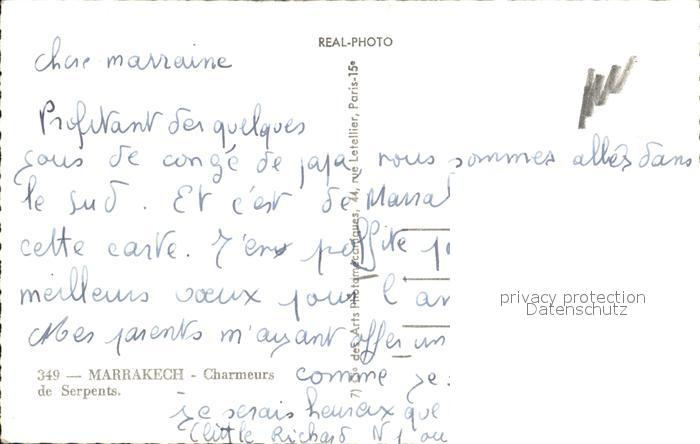 REAL-PHOTO
chere marraine
Profitant des quelques
jours de congé de papa nous sommes allés dans
le sud. Et c'est de Marra
cette carte. J'en profite po
meilleurs voeux pour l'an
Mes parents m'ayant offer un
comme je
je serais heureux que
(little Richard N 1 ou
349 — MARRAKECH - Charmeurs
de Serpents.
des Arts Photomécaniques, 44, rue Letellier, Paris-15e
privacy protection
Datenschutz